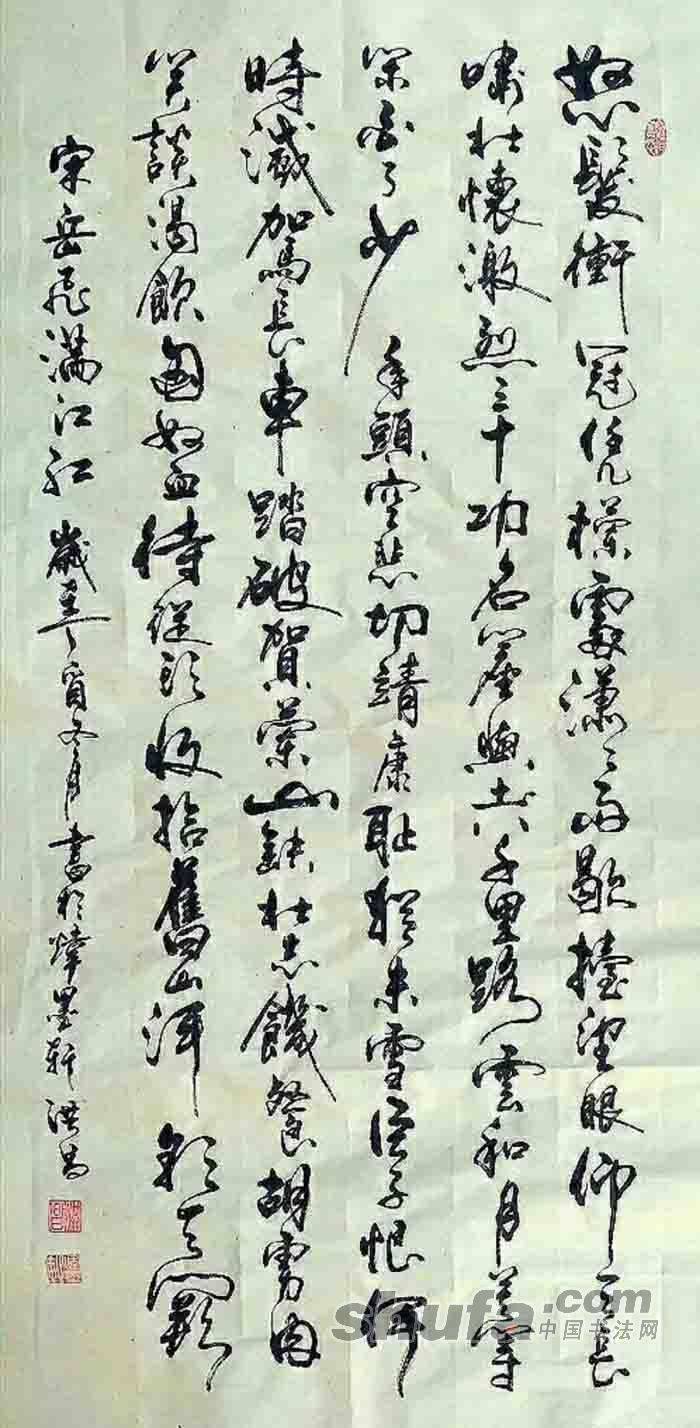 怒髮衝冠凭欄處瀟瀟雨歇擡望眼仰天長
嘯壯懷激烈三十功名塵與土八千里路雲和月莫等
閑白了少年頭空悲切靖康耻猶未雪臣子恨何
時滅駕長車踏破賀蘭山缺壯志饑餐胡虜肉
笑談渴飲匈奴血待從頭收拾舊山河朝天闕
宋岳飛滿江紅 歲在 寅冬月書於 墨軒洪
shufa.com
中国书法网